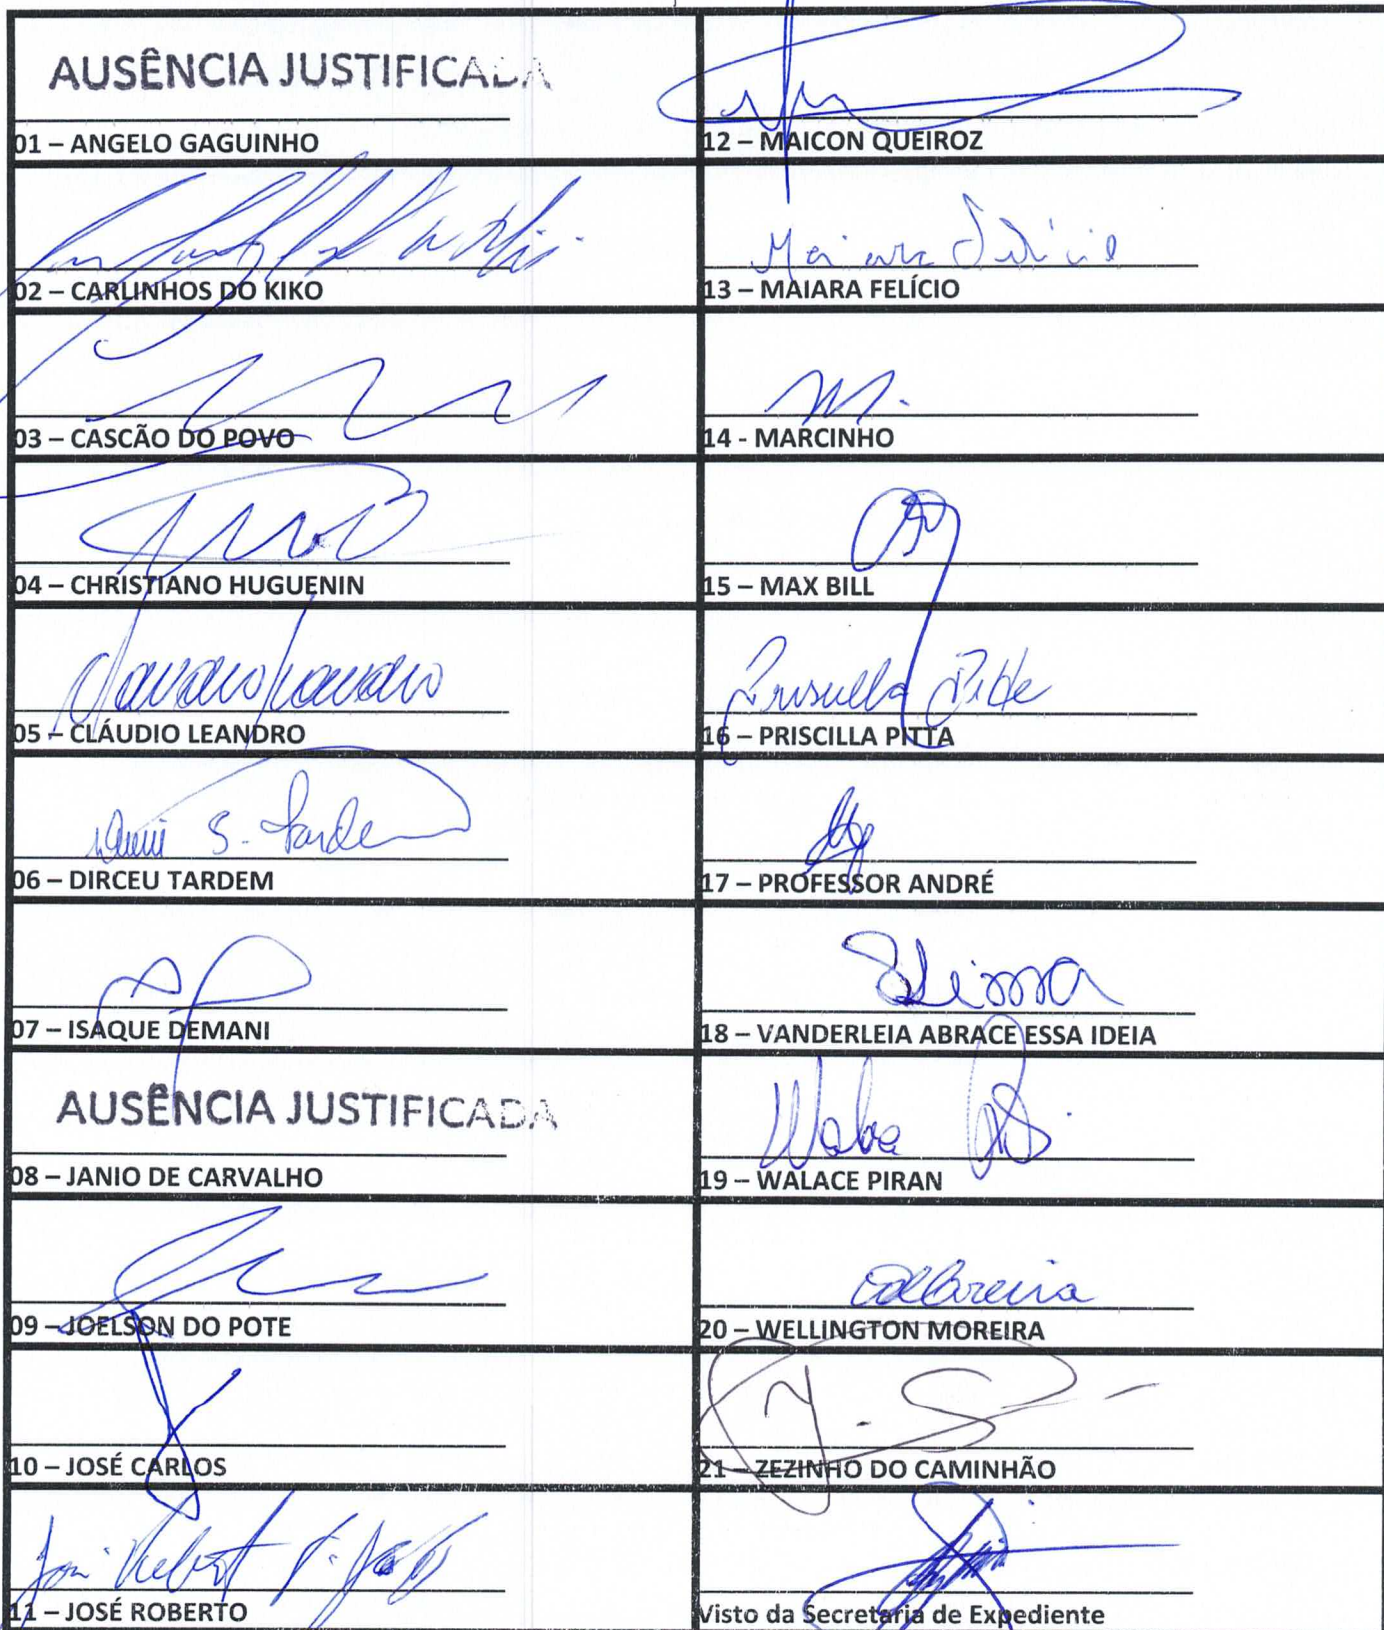 AUSÊNCIA JUSTIFICADA
01 – ANGELO GAGUINHO
02 – CARLINHOS DO KIKO
03 – CASCÃO DO POVO
04 – CHRISTIANO HUGUENIN
05 – CLÁUDIO LEANDRO
S. Tardem
06 – DIRCEU TARDEM
07 – ISAQUE DEMANI
AUSÊNCIA JUSTIFICADA
08 – JANIO DE CARVALHO
09 – JOELSON DO POTE
10 – JOSÉ CARLOS
11 – JOSÉ ROBERTO
12 – MAICON QUEIROZ
Maiara Felício
13 – MAIARA FELÍCIO
M.
14 - MARCINHO
15 – MAX BILL
Priscilla Pitta
16 – PRISCILLA PITTA
17 – PROFESSOR ANDRÉ
18 – VANDERLEIA ABRACE ESSA IDEIA
19 – WALACE PIRAN
20 – WELLINGTON MOREIRA
21 – ZEZINHO DO CAMINHÃO
Visto da Secretaria de Expediente